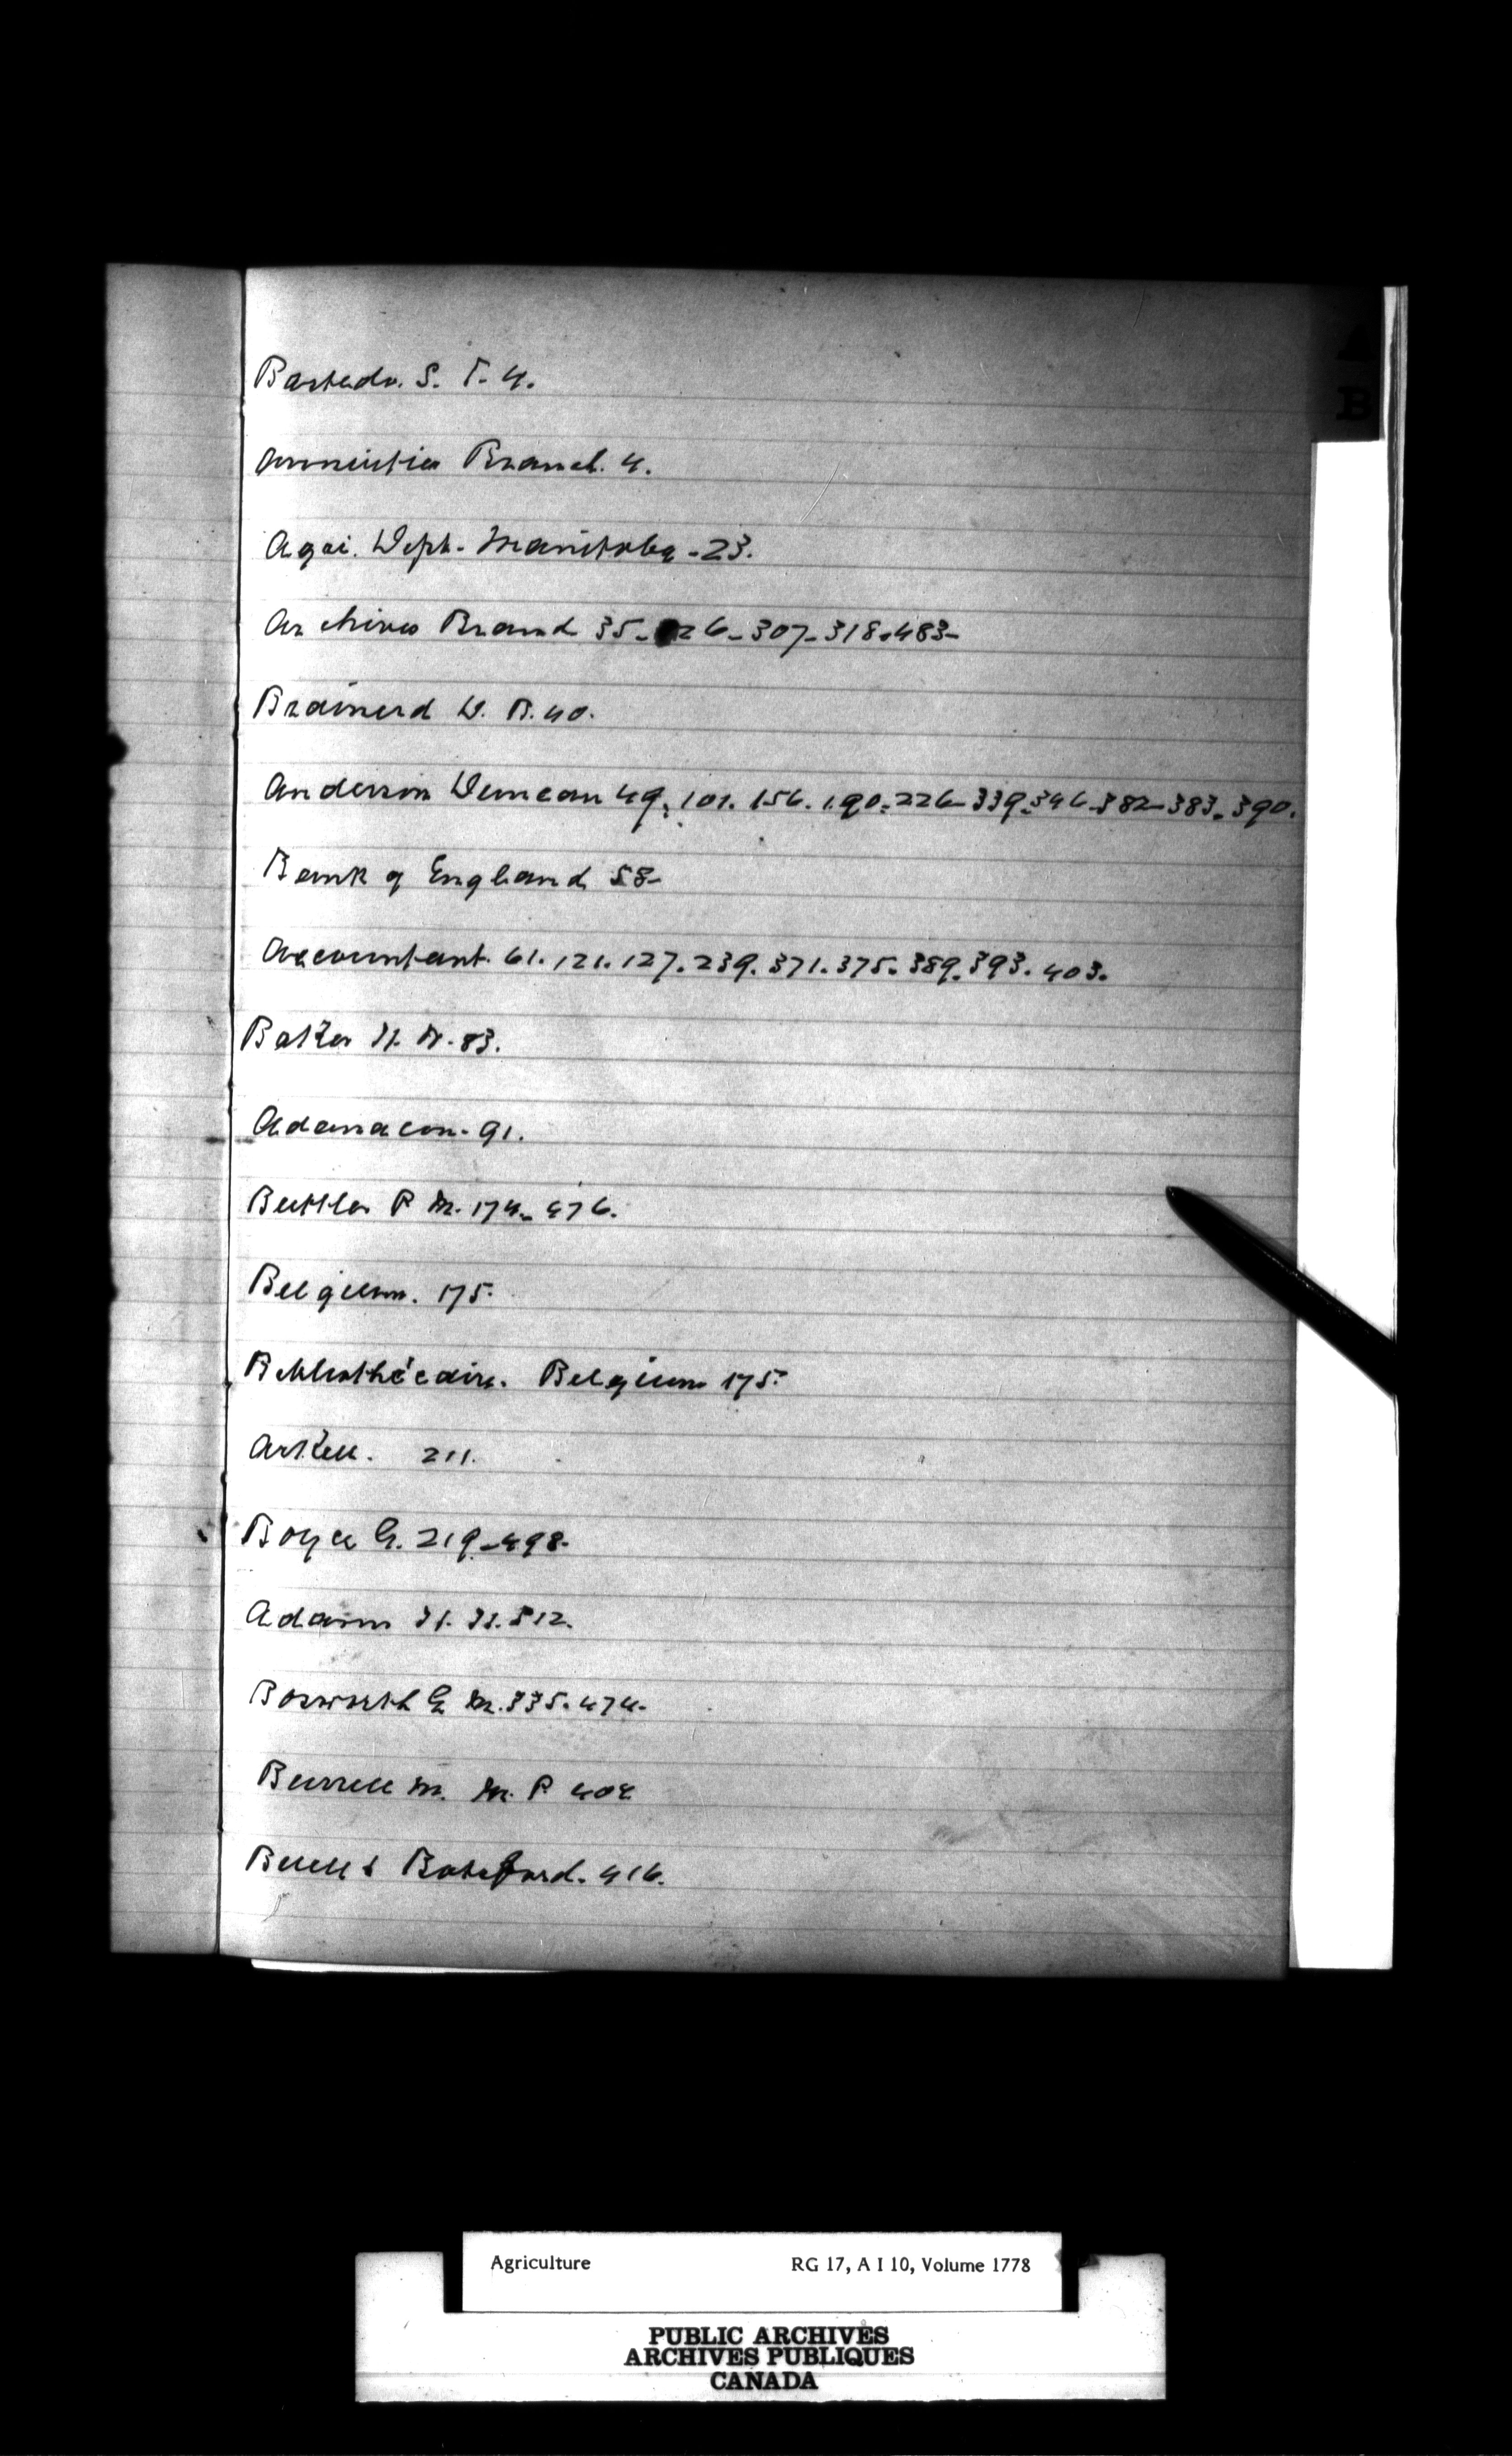 A
B
Bastedo. S. T. 4.
Annuities Branch. 4.
Agri. Dept. Manitoba - 23.
Archives Branch 35- 26- 307- 318. 483-
Brainerd W. B. 40.
Anderson Duncan 49. 101. 156. 190. 226- 339. 346- 382- 383. 390.
Bank of England 58-
Accountant. 61. 121. 127. 239. 371. 375. 389. 393. 403.
Baker H. B. 83.
Adanacon. 91.
Buttler P M. 174. 476.
Belgium. 175.
Bibliothécaire. Belgium 175.
Arkell. 211.
Boyce G. 219. 498.
Adams H. H. 512.
Bosworth G M. 335. 474.
Burrell M. M. P
Buell & Botsford. 416.
Agriculture RG 17, A I 10, Volume 1778
PUBLIC ARCHIVES
ARCHIVES PUBLIQUES
CANADA